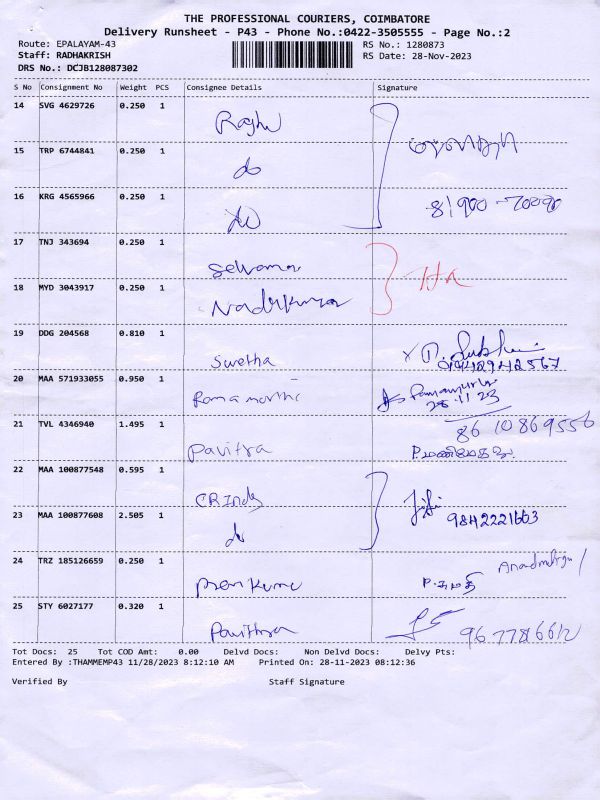 THE PROFESSIONAL COURIERS, COIMBATORE
Delivery Runsheet - P43 - Phone No.:0422-3505555 - Page No.:2
Route: EPALAYAM-43 RS No.: 1280873
Staff: RADHAKRISH RS Date: 28-Nov-2023
DRS No.: DCJB128087302
S No Consignment No Weight PCS Consignee Details Signature
14 SVG 4629726 0.250 1 Raghu
15 TRP 6744841 0.250 1 do
16 KRG 4565966 0.250 1 do
17 TNJ 343694 0.250 1
18 MYD 3043917 0.250 1
19 DDG 204568 0.810 1 Swetha
20 MAA 571933055 0.950 1 Ramamorthi
28.11.23
21 TVL 4346940 1.495 1 Pavitra 86 10869556
P.மணிமேகலை
22 MAA 100877548 0.595 1
23 MAA 100877608 2.505 1 do 9842221663
24 TRZ 185126659 0.250 1
25 STY 6027177 0.320 1 Pavithra
Tot Docs: 25 Tot COD Amt: 0.00 Delvd Docs: Non Delvd Docs: Delvy Pts:
Entered By :THAMMEMP43 11/28/2023 8:12:10 AM Printed On: 28-11-2023 08:12:36
Verified By Staff Signature